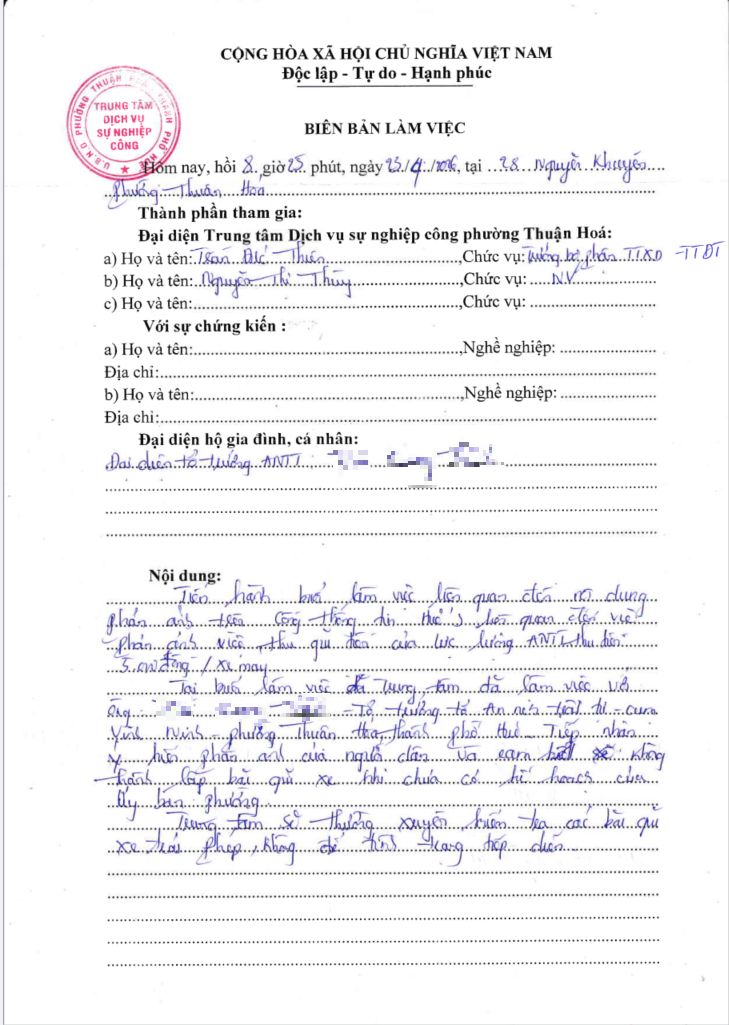 CỘNG HÒA XÃ HỘI CHỦ NGHĨA VIỆT NAM
Độc lập - Tự do - Hạnh phúc
U.B.N.D PHƯỜNG THUẬN HOÁ THÀNH PHỐ HUẾ
TRUNG TÂM
DỊCH VỤ
SỰ NGHIỆP
CÔNG
BIÊN BẢN LÀM VIỆC
Hôm nay, hồi 8 giờ 25 phút, ngày 23/4/2026, tại 28 Nguyễn Khuyến
phường Thuận Hoá
Thành phần tham gia:
Đại diện Trung tâm Dịch vụ sự nghiệp công phường Thuận Hoá:
a) Họ và tên: Trần Đức Thiên, Chức vụ: Trưởng bộ phận TTXD - TTĐT
b) Họ và tên: Nguyễn Thị Thùy, Chức vụ: NV
c) Họ và tên:, Chức vụ:
Với sự chứng kiến :
a) Họ và tên:, Nghề nghiệp:
Địa chỉ:
b) Họ và tên:, Nghề nghiệp:
Địa chỉ:
Đại diện hộ gia đình, cá nhân:
Đại diện tổ trưởng ANTT
Nội dung:
Tiến hành buổi làm việc liên quan đến nội dung
phản ánh trên Cổng thông tin Huế S liên quan đến việc
phản ánh việc thu giữ của lực lượng ANTT thu tiền
5.000 đồng / xe máy
Tại buổi làm việc trung tâm đã làm việc với
ông - Tổ trưởng tổ An ninh trật tự
Vĩnh Ninh - phường Thuận Hoá, thành phố Huế. Tiếp nhận
ý kiến phản ánh của người dân và cam kết sẽ không
thành lập bãi giữ xe khi chưa có kế hoạch của
Ủy ban phường
Trung tâm sẽ thường xuyên kiểm tra các bãi giữ
xe trái phép, không để tình trạng tiếp diễn